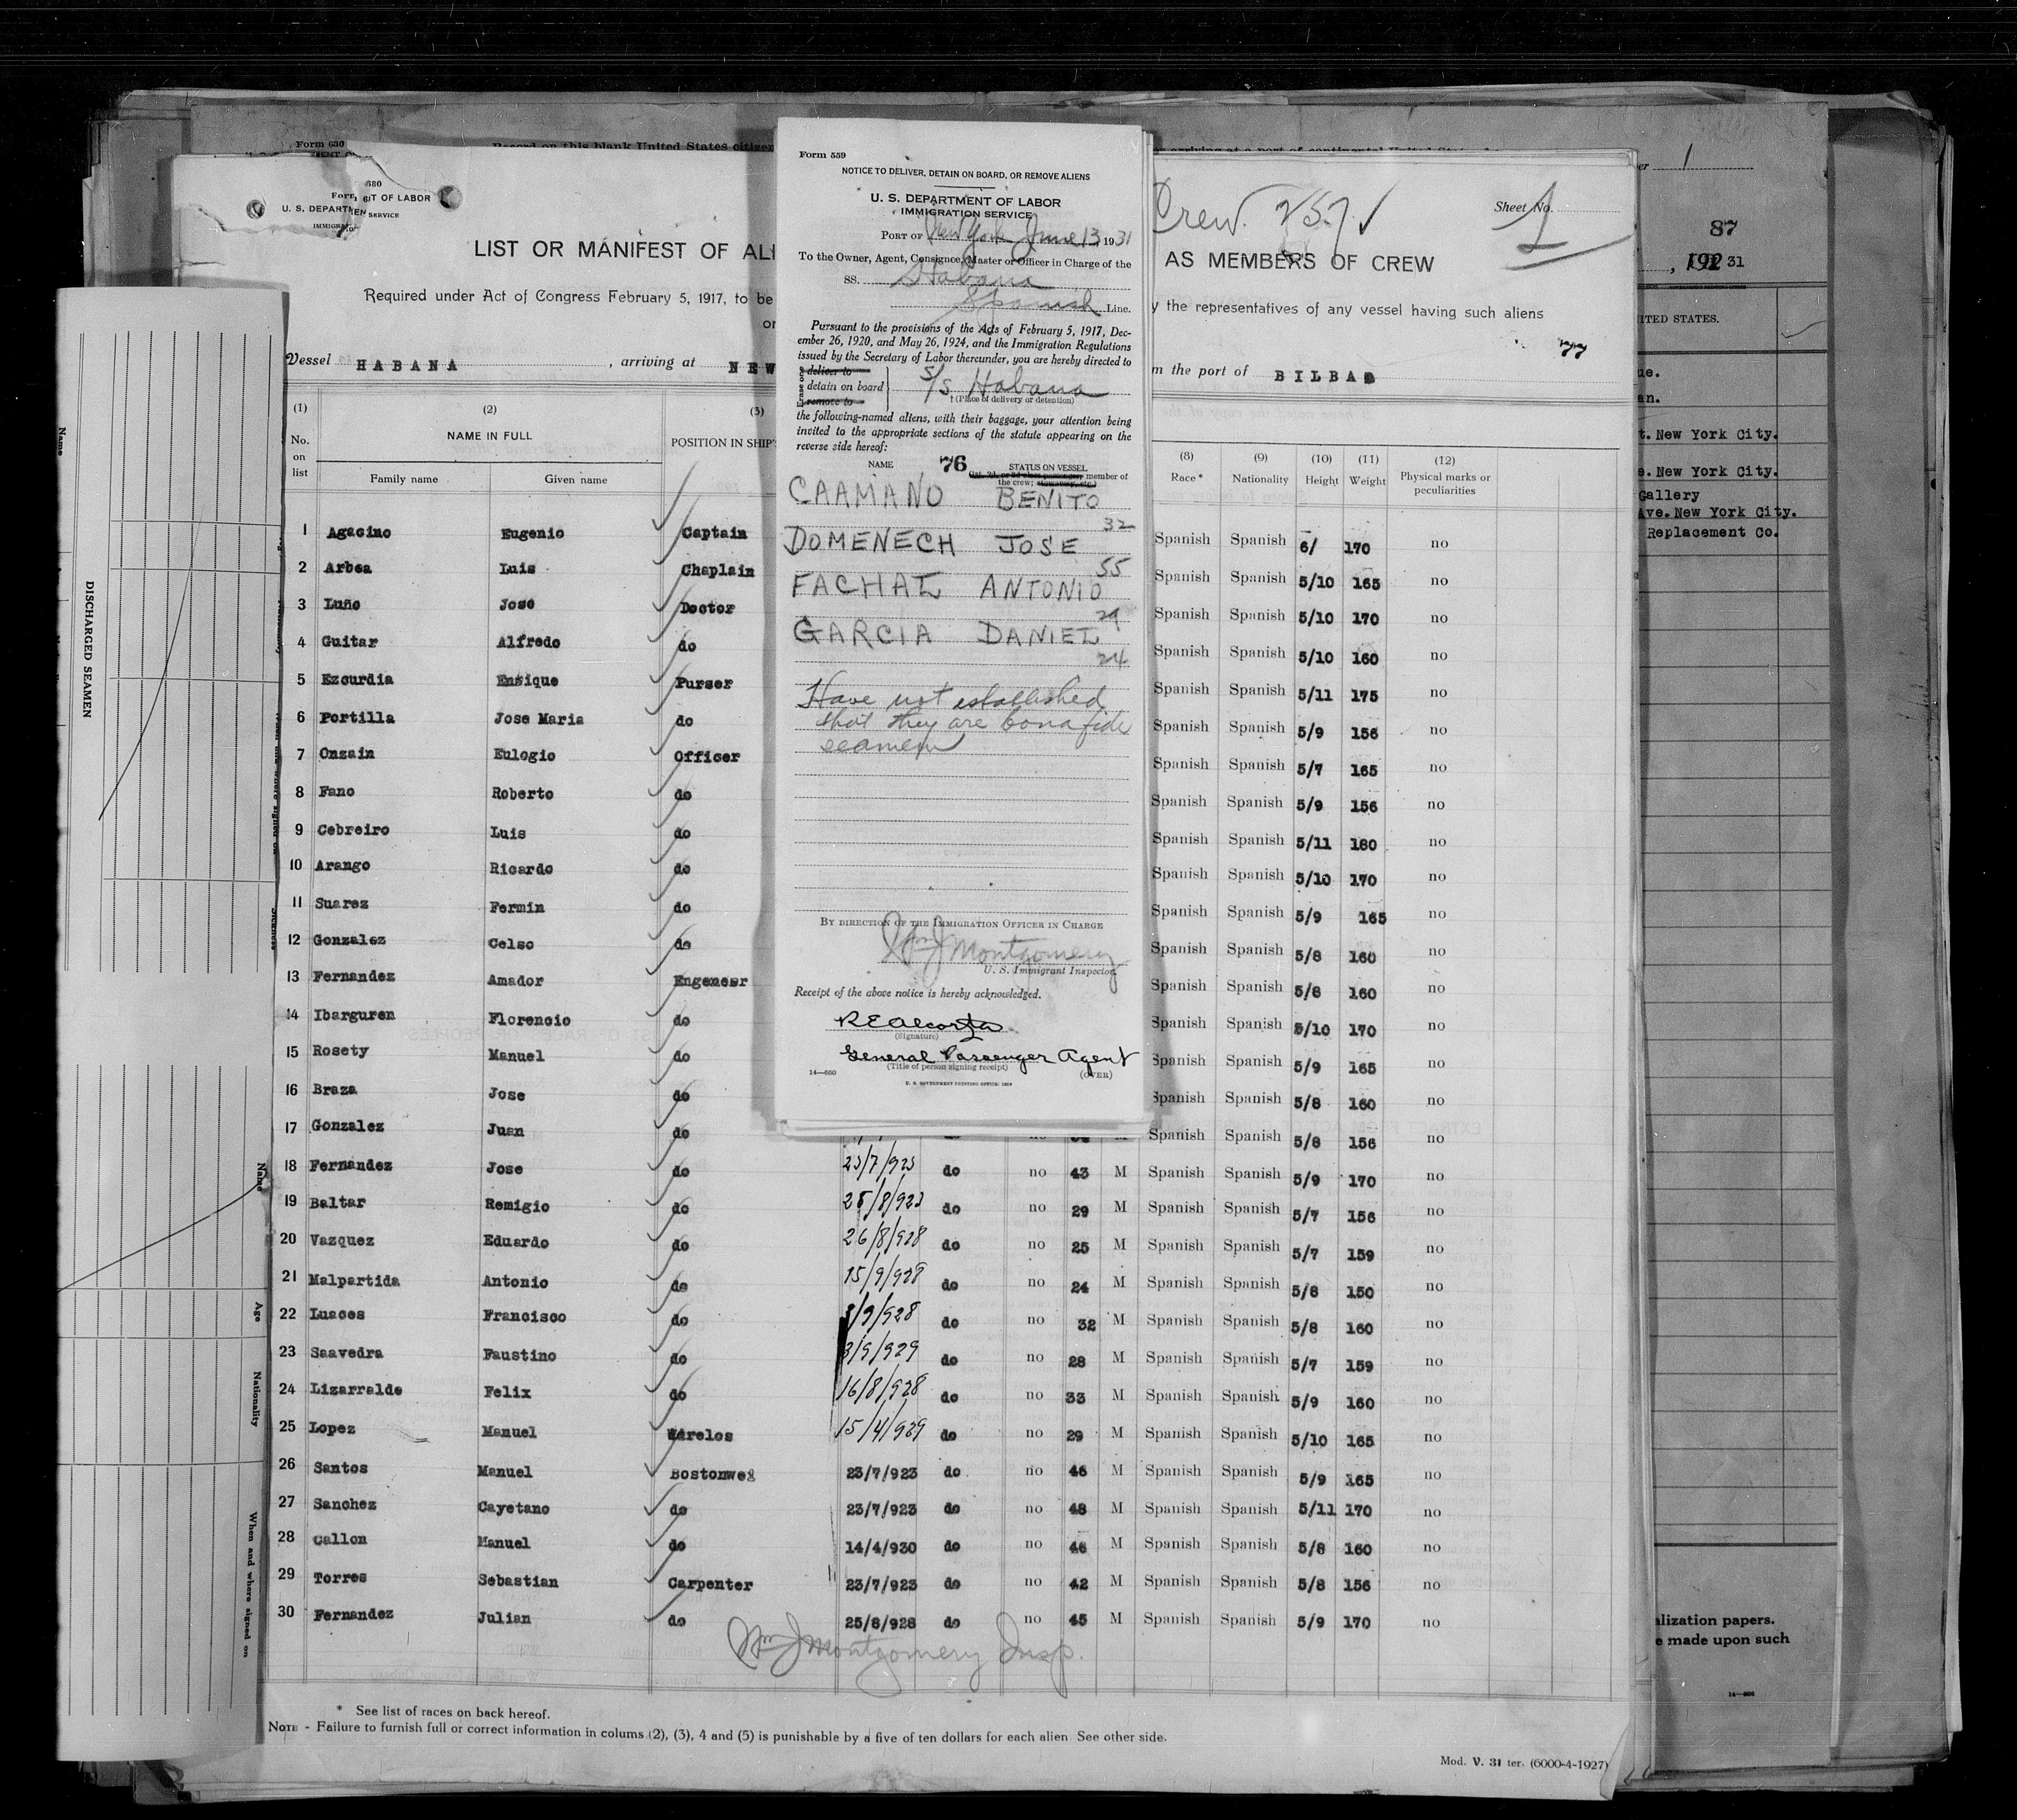 Form 630
Record on this blank United States citizen
er 1
87
, 192 31
ITED STATES.
ue.
an.
t. New York City.
e. New York City.
Gallery
Ave. New York City.
Replacement Co.
alization papers.
e made upon such
680
U. S. DEPARTMENT OF LABOR
SERVICE
Crew. 257 ✓
Sheet No. 1
LIST OR MANIFEST OF ALI
AS MEMBERS OF CREW
Required under Act of Congress February 5, 1917, to be
y the representatives of any vessel having such aliens
or
77
Vessel HABANA , arriving at NEW
m the port of BILBAO
(1) (2) (3) (8) (9) (10) (11) (12)
No. on list NAME IN FULL POSITION IN SHIP' Race* Nationality Height Weight Physical marks or peculiarities
Family name Given name
1 Agacino Eugenio Captain Spanish Spanish 6/ 170 no
2 Arbea Luis Chaplain Spanish Spanish 5/10 165 no
3 Luño Jose Doctor Spanish Spanish 5/10 170 no
4 Guitar Alfredo do Spanish Spanish 5/10 160 no
5 Ezcurdia Ensique Purser Spanish Spanish 5/11 175 no
6 Portilla Jose Maria do Spanish Spanish 5/9 156 no
7 Onzain Eulogio Officer Spanish Spanish 5/7 165 no
8 Fano Roberto do Spanish Spanish 5/9 156 no
9 Cebreiro Luis do Spanish Spanish 5/11 180 no
10 Arango Ricardo do Spanish Spanish 5/10 170 no
11 Suarez Fermin do Spanish Spanish 5/9 165 no
12 Gonzalez Celso do Spanish Spanish 5/8 160 no
13 Fernandez Amador Engeneer Spanish Spanish 5/8 160 no
14 Ibarguren Florencio do Spanish Spanish 5/10 170 no
15 Rosety Manuel do Spanish Spanish 5/9 165 no
16 Braza Jose do Spanish Spanish 5/8 160 no
17 Gonzalez Juan do Spanish Spanish 5/8 156 no
18 Fernandez Jose do 23/7/923 do no 43 M Spanish Spanish 5/9 170 no
19 Baltar Remigio do 25/8/923 do no 29 M Spanish Spanish 5/7 156 no
20 Vazquez Eduardo do 26/8/928 do no 25 M Spanish Spanish 5/7 159 no
21 Malpartida Antonio do 15/9/928 do no 24 M Spanish Spanish 5/8 150 no
22 Luaces Francisco do /9/928 do no 32 M Spanish Spanish 5/8 160 no
23 Saavedra Faustino do 3/9/929 do no 28 M Spanish Spanish 5/7 159 no
24 Lizarralde Felix do 16/8/928 do no 33 M Spanish Spanish 5/9 160 no
25 Lopez Manuel Wirelos 15/4/929 do no 29 M Spanish Spanish 5/10 165 no
26 Santos Manuel Bostonwei 23/7/923 do no 46 M Spanish Spanish 5/9 165 no
27 Sanchez Cayetano do 23/7/923 do no 48 M Spanish Spanish 5/11 170 no
28 Callon Manuel do 14/4/930 do no 46 M Spanish Spanish 5/8 160 no
29 Torres Sebastian Carpenter 23/7/923 do no 42 M Spanish Spanish 5/8 156 no
30 Fernandez Julian do 25/8/928 do no 45 M Spanish Spanish 5/9 170 no
Wm J Montgomery Insp.
* See list of races on back hereof.
NOTE - Failure to furnish full or correct information in colums (2), (3), 4 and (5) is punishable by a five of ten dollars for each alien See other side.
Mod. V. 31 ter. (6000-4-1927)
Form 559
NOTICE TO DELIVER, DETAIN ON BOARD, OR REMOVE ALIENS
U. S. DEPARTMENT OF LABOR
IMMIGRATION SERVICE
PORT OF New York June 13, 1931
To the Owner, Agent, Consignee, Master or Officer in Charge of the
SS. Habana
Spanish Line.
Pursuant to the provisions of the Acts of February 5, 1917, Dec-
ember 26, 1920, and May 26, 1924, and the Immigration Regulations
issued by the Secretary of Labor thereunder, you are hereby directed to
Erase one
deliver to
detain on board
remove to
S/S Habana
† (Place of delivery or detention)
the following-named aliens, with their baggage, your attention being
invited to the appropriate sections of the statute appearing on the
reverse side hereof:
NAME 76 STATUS ON VESSEL
(1st, 2d, or 3d class passenger, member of
the crew; stowaway, etc.)
CAAMANO BENITO
32
DOMENECH JOSE
55
FACHAL ANTONIO
29
GARCIA DANIEL
24
Have not established
that they are bonafide
seamen
BY DIRECTION OF THE IMMIGRATION OFFICER IN CHARGE
Wm J Montgomery
U. S. Immigrant Inspector.
Receipt of the above notice is hereby acknowledged.
R E Alcorta
(Signature)
General Passenger Agent
(Title of person signing receipt)
14—660
(OVER)
U. S. GOVERNMENT PRINTING OFFICE: 1929
DISCHARGED SEAMEN
Name
Name
Age
Nationality
When and where signed on